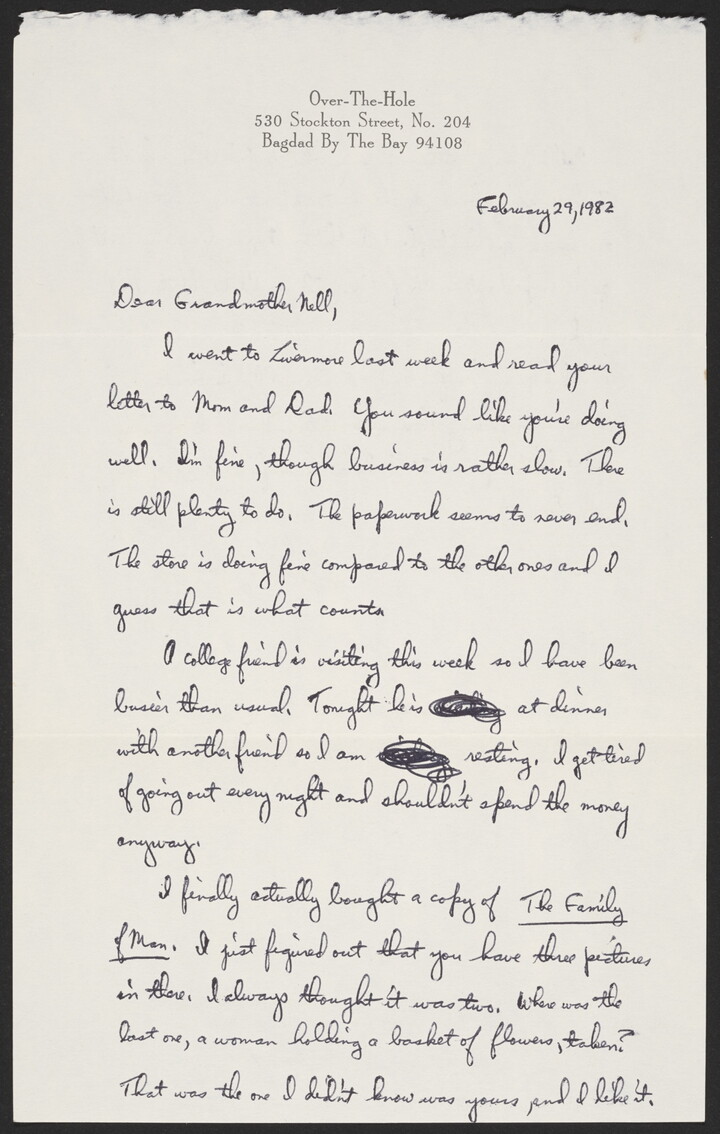 Over-The-Hole
530 Stockton Street, No. 204
Bagdad By The Bay 94108
February 29, 1982
Dear Grandmother Nell,
I went to Livermore last week and read your
letter to Mom and Dad. You sound like you're doing
well. I'm fine, though business is rather slow. There
is still plenty to do. The paperwork seems to never end.
The store is doing fine compared to the other ones and I
guess that is what counts.
A college friend is visiting this week so I have been
busier than usual. Tonight he is at dinner
with another friend so I am resting. I get tired
of going out every night and shouldn't spend the money
anyway.
I finally actually bought a copy of The Family
of Man. I just figured out that you have three pictures
in there. I always thought it was two. Where was the
last one, a woman holding a basket of flowers, taken?
That was the one I didn't know was yours, and I like it.